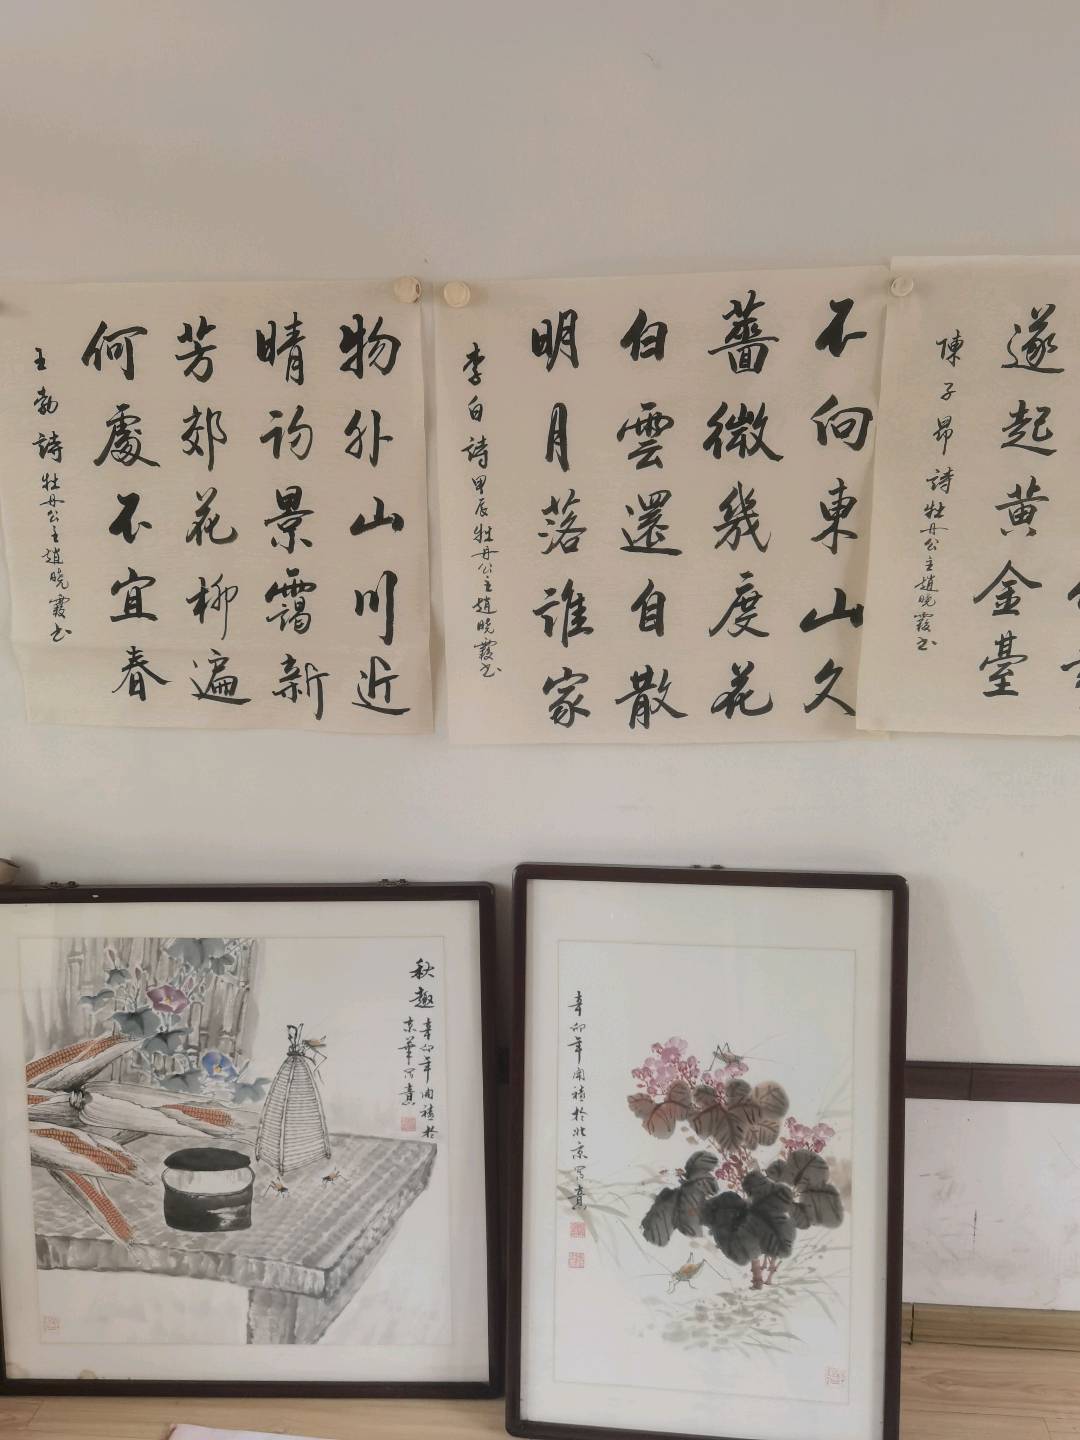 遂起黄金臺
陳子昂詩 牡丹公主趙晓霞书
不向東山久
薔微幾度花
白雲還自散
明月落誰家
李白詩 甲辰牡丹公主趙晓霞书
物外山川近
晴初景靄新
芳郊花柳遍
何處不宜春
王勃詩 牡丹公主趙晓霞书
秋趣
辛卯年 於
京華写意
辛卯年 於北京写意